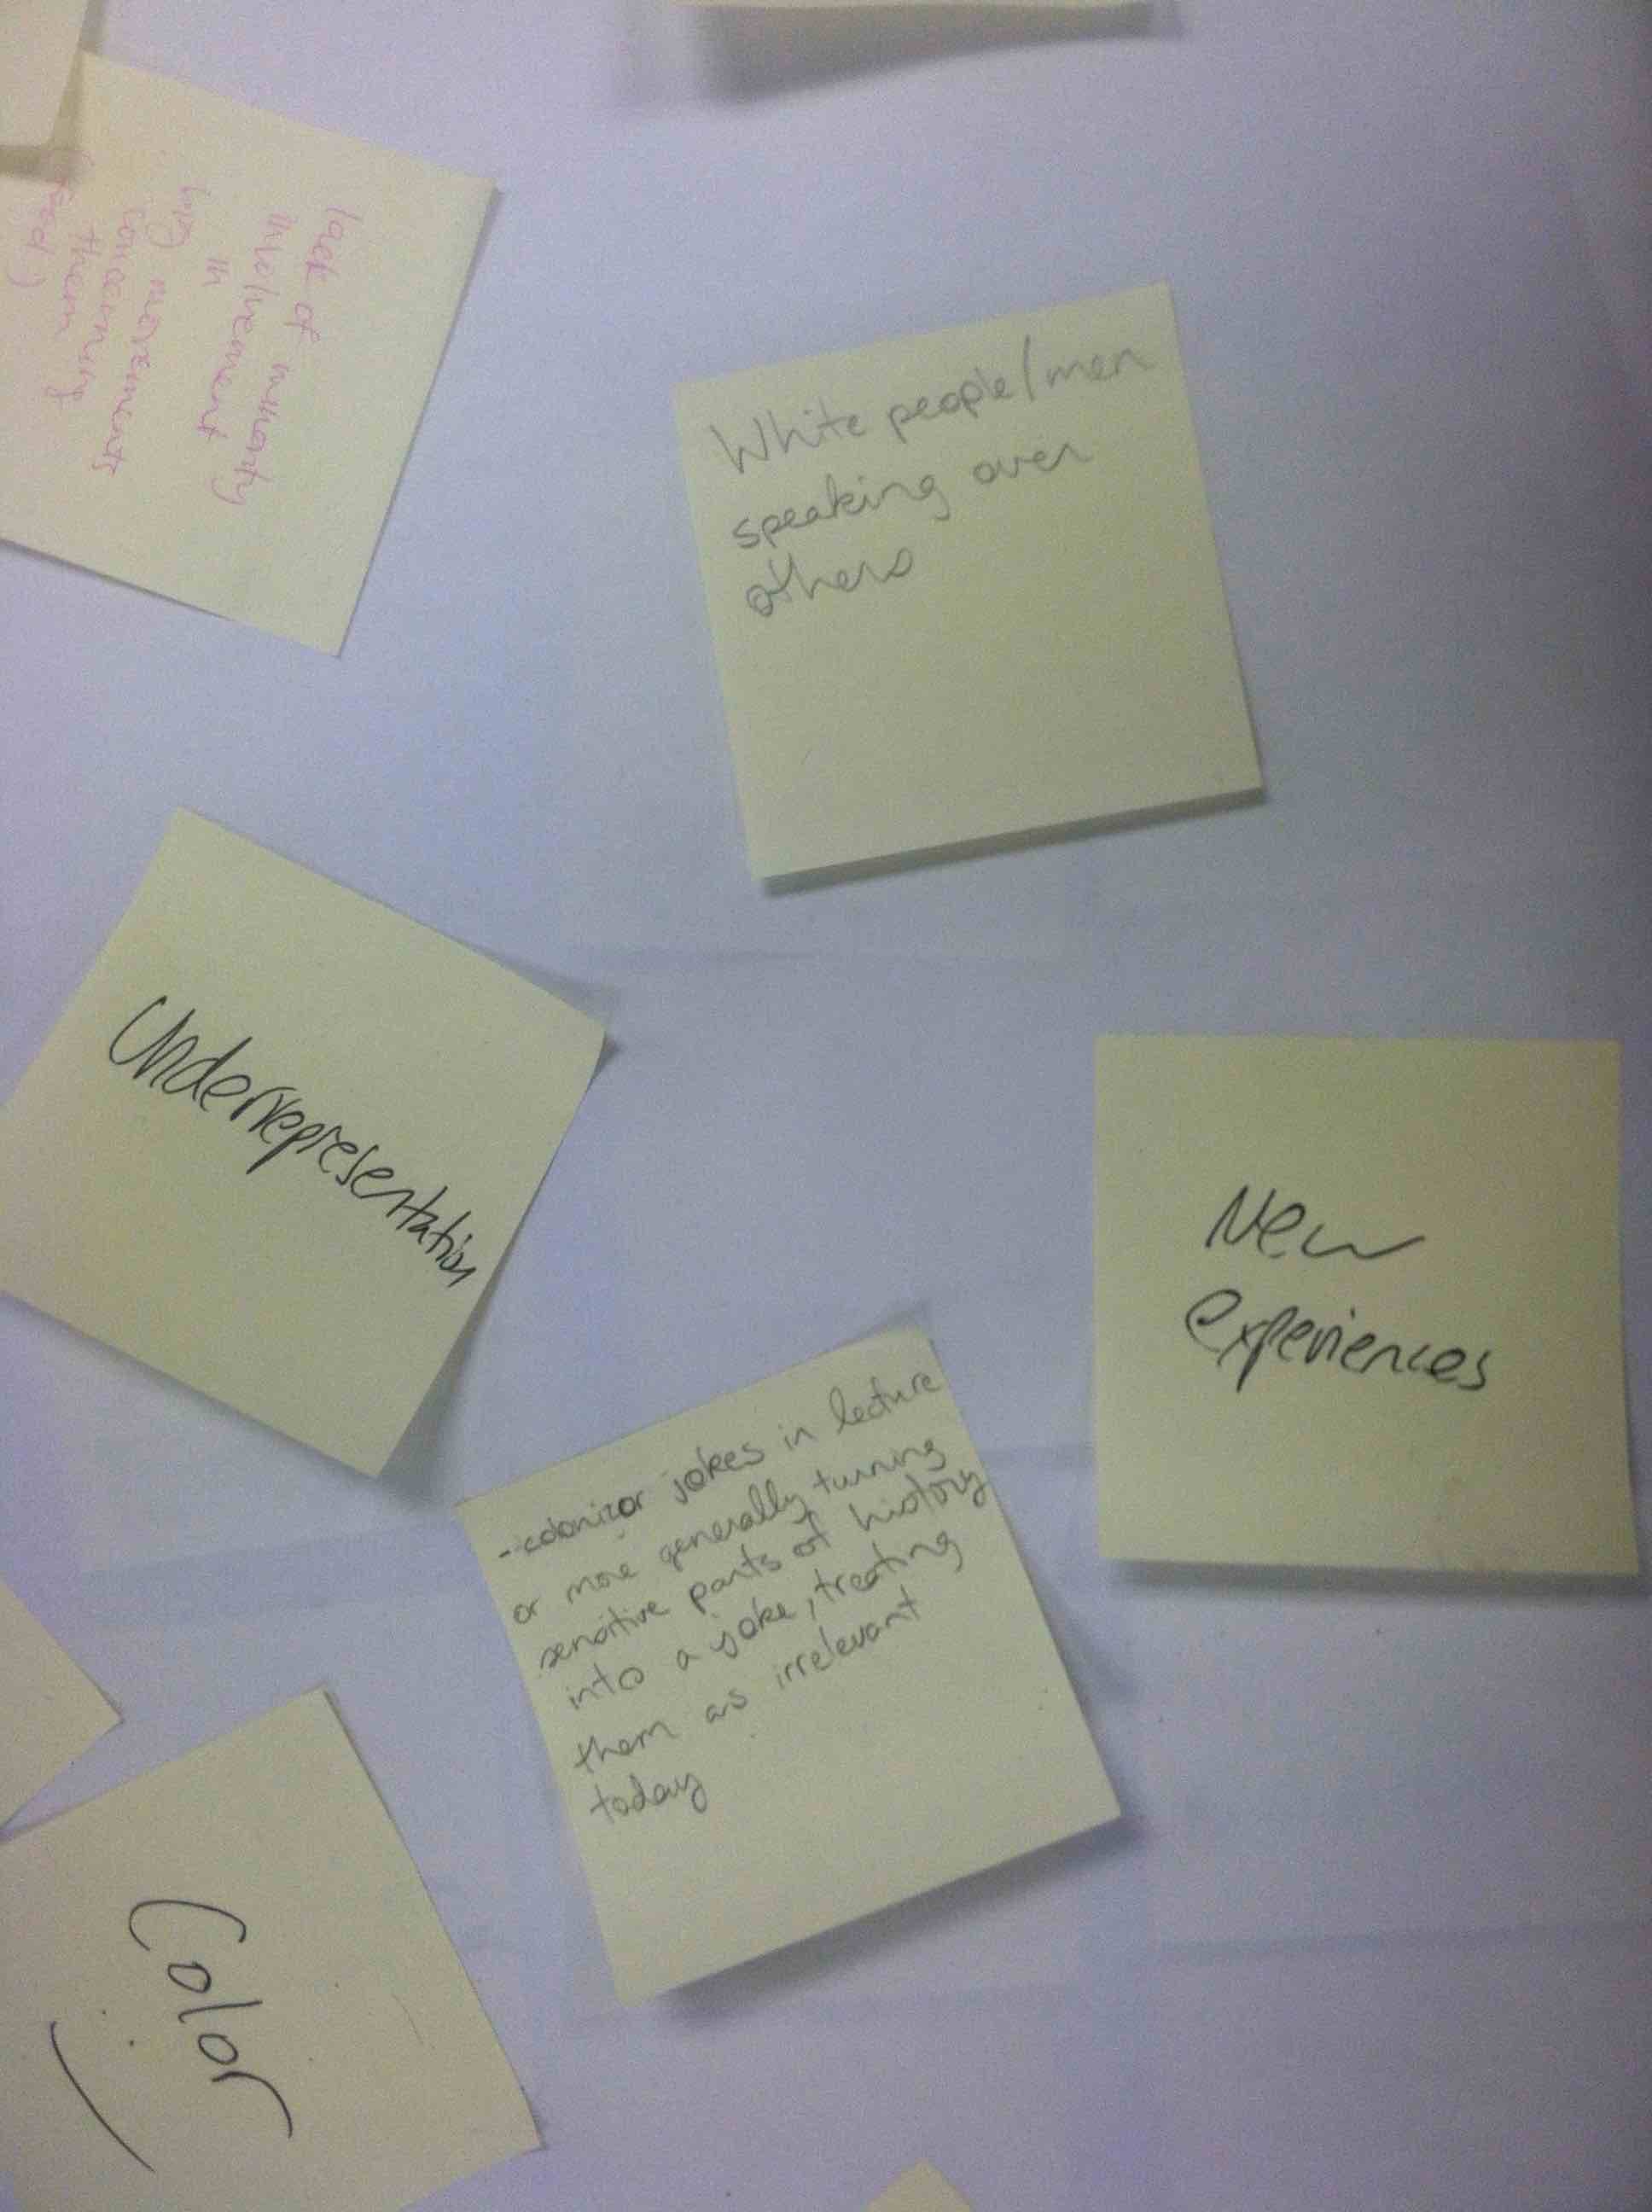 lack of minority
involvement
in
movements
concerning
them
White people/men
speaking over
others
Underrepresentation
New
experiences
- colonizor jokes in lecture
or more generally turning
sensitive parts of history
into a joke, treating
them as irrelevant
today
Color